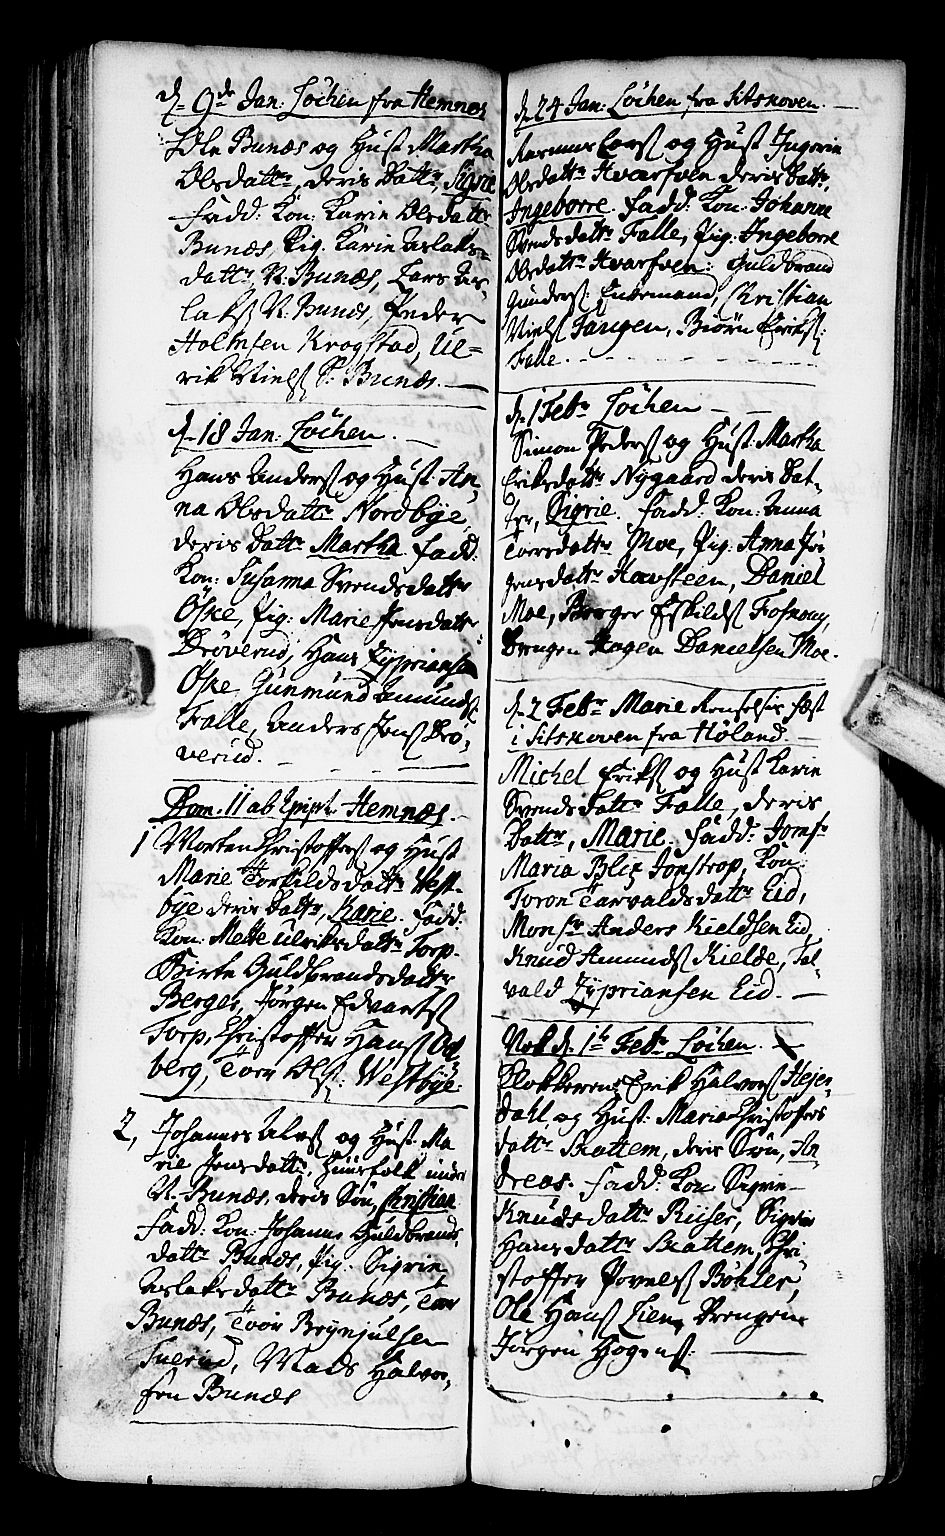 d. 9de Jan: Löchen fra Hemnes
Ole Bunæs og Hust Martha
Olsdattr, deris Dattr, Sigrie
Fadd: Kon: Karin Olsdattr
Bunæs Pig. Karin Aslaks=
dattr, N. Bunæs, Lars As-
laks N. Bunæs, Peder
Holmsen Krogstad, Ul=
rik Niels S. Bunæs.
d. 18 Jan: Löchen.
Hans Anders og Hust An,
na Olsdattr Nordbye,
deris Dattr Martha Fadd:
Kon: Susanna Svendsdattr
Öske, Pig: Marie Jensdattr
Dröverud, Hans Zypriansen
Öske Gunmund Amunds
Falle, Anders Jens Drö,
verud.
Dom. II ab Epiph. Hemnæs.
1 Morten Christoffers og Hust
Marie Torkildsdattr West-
bye deris Dattr, Karie. Fadd:
Kon: Mette Ulriksdattr Torp.
Birte Guldbrandsdattr
Berger, Jörgen Edvarts
Torp, Christoffer Hans
berg, Toer Ols: Westbye.
2, Johannes Alvs og Hust. Ma
rie Jensdattr, Huusfolk under
N. Bunæs, deris Sön, Christian
Fadd: Kon: Johanne Guldbrands,
dattr Bunæs, Pig. Sigrie
Aslaksdattr Bunæs, Toer
Bunæs, Toer Brynjulsen
Tuerud, Mads Halvor,
sen Bunæs
d. 24 Jan: Löchen fra Sitskoven.
Rasmus Lars og Hust Ingerie
Olsdattr Hvarfven deris Dattr,
Ingeborre. Fadd: Kon: Johanne
Svendsdattr Falle, Pig: Ingeborre
Olsdattr Hvarfven: Guldbrand
Gunders: Enkemand, Kristian
Niels Tangen, Biörn Eriks:
Falle.
d. 1 Febr Löchen
Simon Peders og Hust: Martha
Eriksdattr Nygaard deris Dat-
ter, Sigrie. Fadd: Kon: Anna
Torersdattr Moe, Pig: Anna Jör
gensdattr Havsteen, Daniel
Moe, Berger Eskilds Fosnoy,
Drengen Hagen Danielsen Moe.
d. 2 Febr Marie Renselsis fæst
i Sitskoven fra Höland
Michel Eriks og Hust Karie
Svendsdattr Falle, deris
Dattr, Marie. Fadd: Jomfr
Maria Blix Jonstrop, Kon:
Toron Tarvaldsdattr Eid,
Monsr Anders Kieldsen Eid,
Knud Amunds Kielde, Tol-
vald Zypriansen Eid.
Nok d. 1te Febr Löchen.
Klokkerens Erik Halvors Hejer
dahl og Hust: Maria Christoffers
dattr Brattem, deris Sön, An
dreas. Fadd: Kon Sigrie
Knudsdattr Riiser, Sigrie
Hansdattr Brattem, Chri
stoffer Povels Böhler,
Ole Hans Lien, Drengen
Jörgen Hogens: